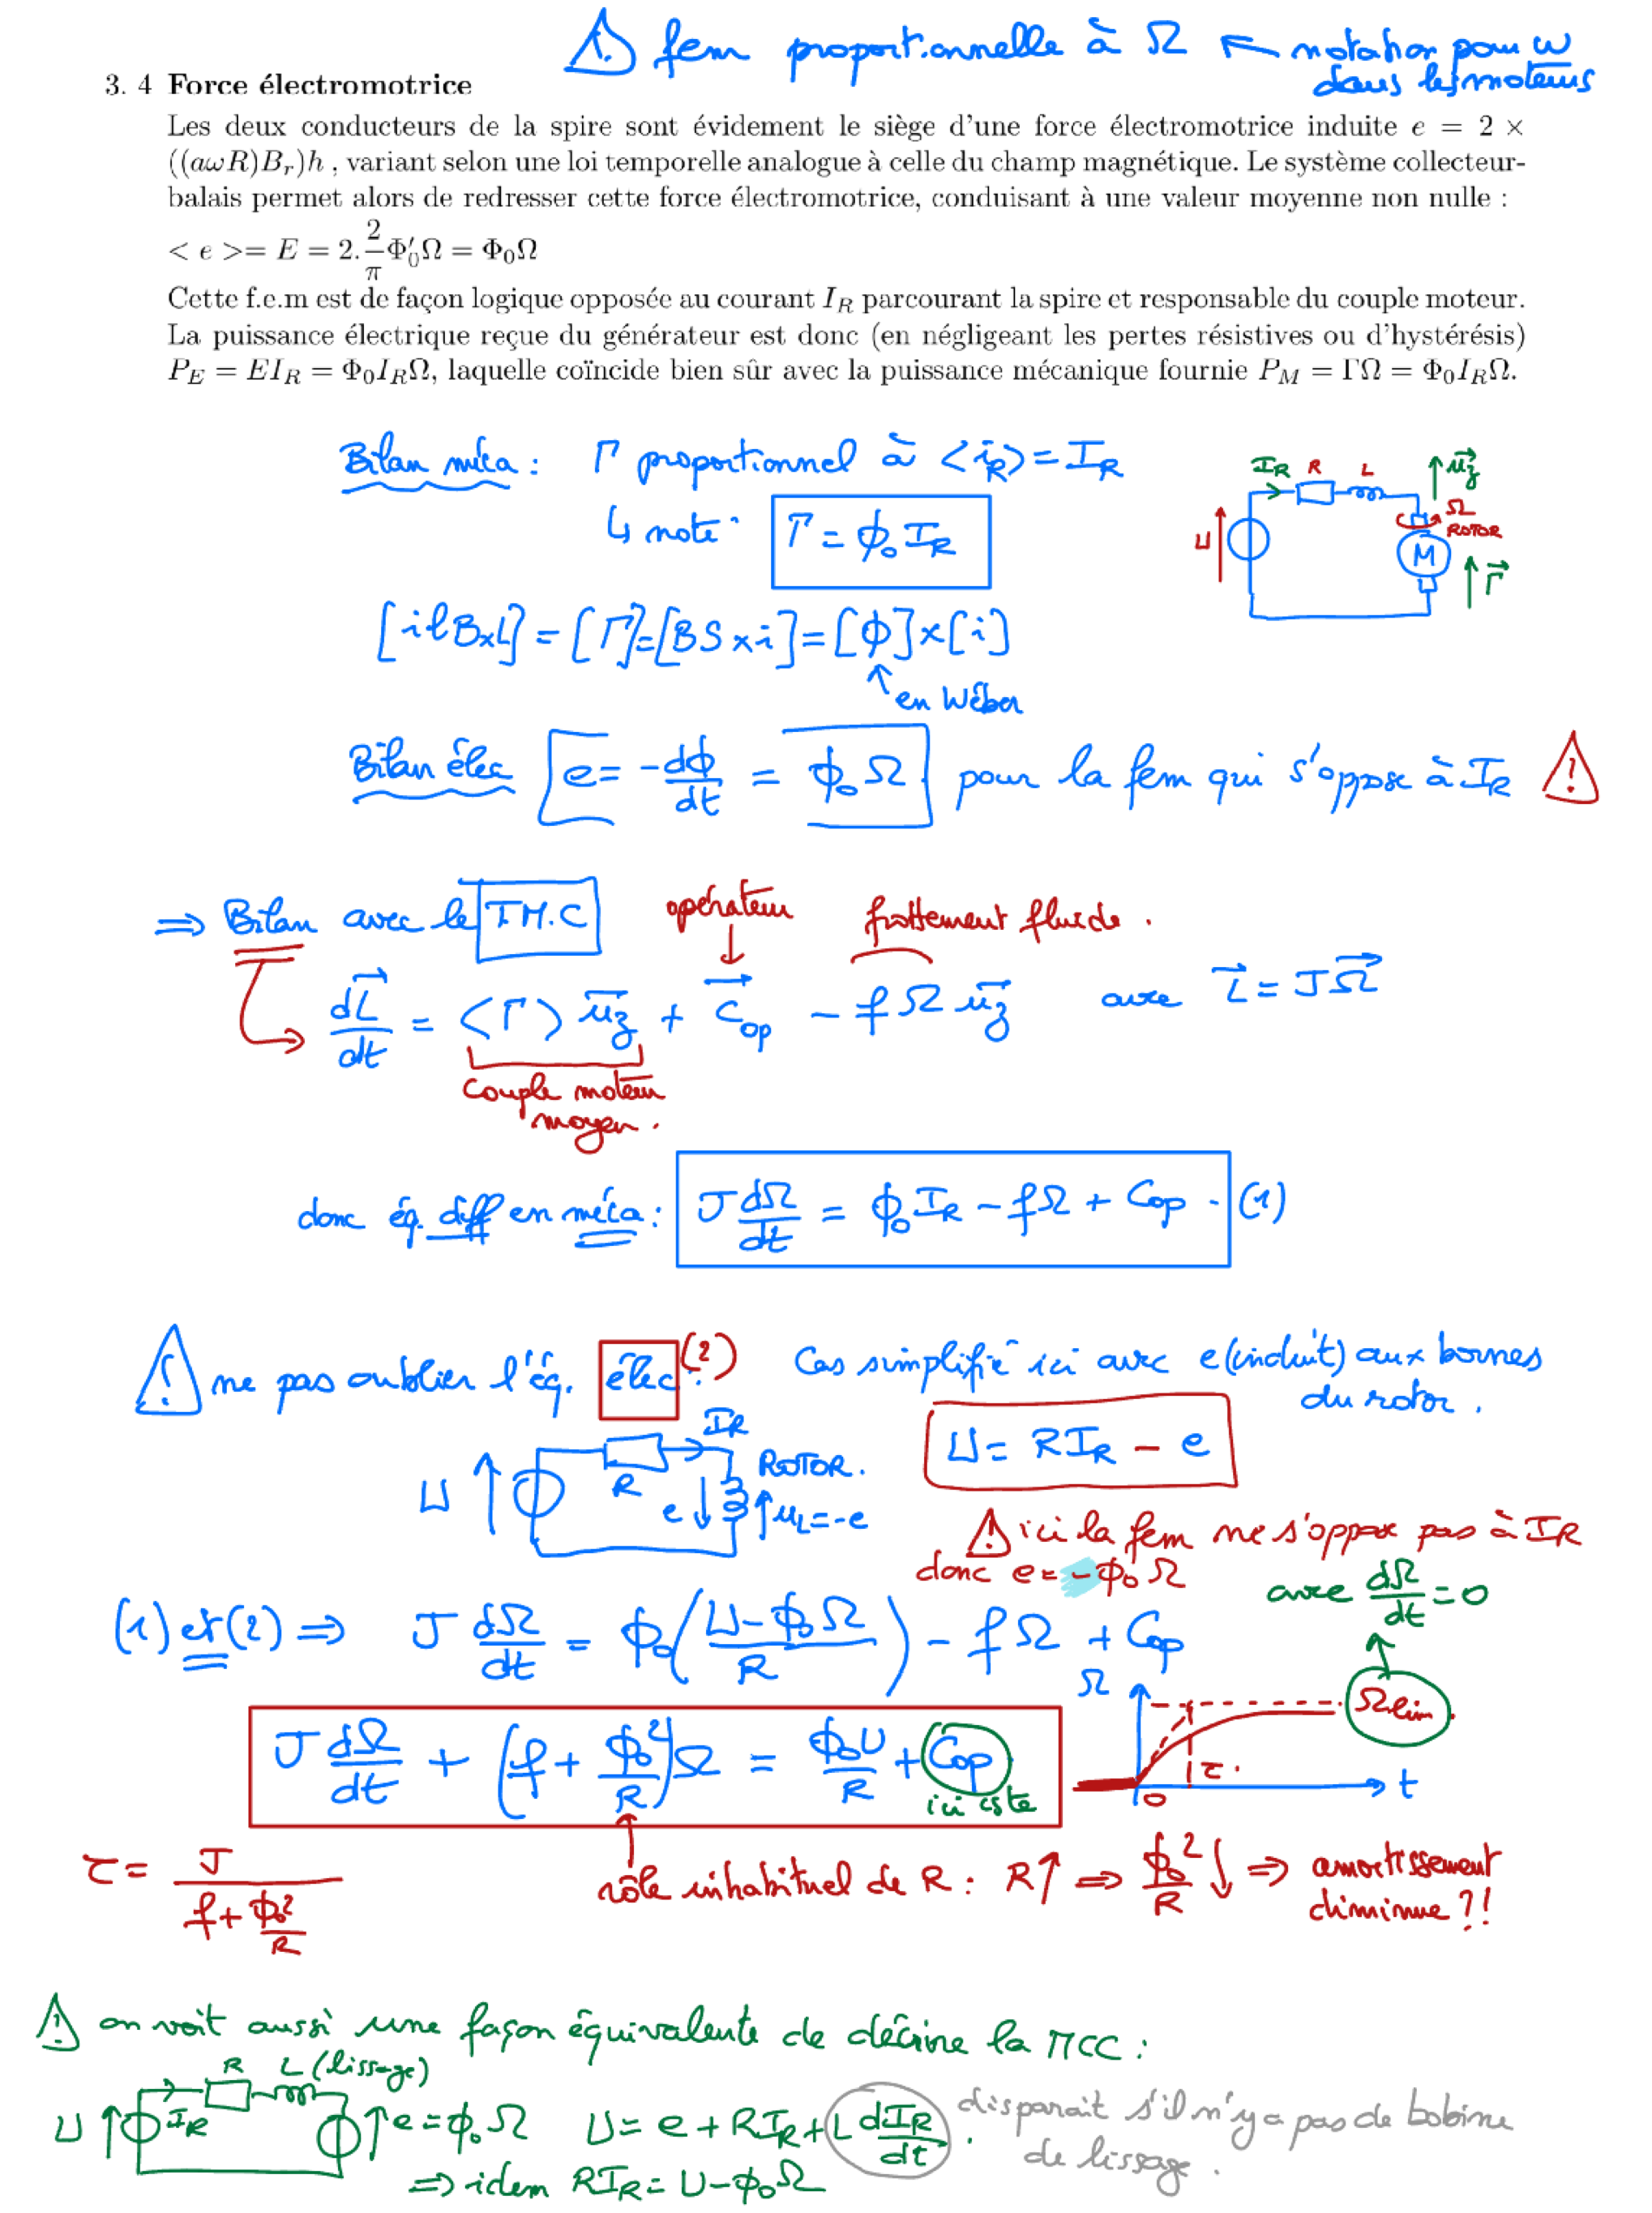 ⚠ fem proportionnelle à Ω ← notation pour ω
dans les moteurs
3. 4 Force électromotrice
Les deux conducteurs de la spire sont évidement le siège d'une force électromotrice induite e = 2 ×
((aωR)B_r)h , variant selon une loi temporelle analogue à celle du champ magnétique. Le système collecteur-
balais permet alors de redresser cette force électromotrice, conduisant à une valeur moyenne non nulle :
< e >= E = 2.\frac{2}{π}Φ'_0Ω = Φ_0Ω
Cette f.e.m est de façon logique opposée au courant I_R parcourant la spire et responsable du couple moteur.
La puissance électrique reçue du générateur est donc (en négligeant les pertes résistives ou d'hystérésis)
P_E = EI_R = Φ_0I_RΩ, laquelle coïncide bien sûr avec la puissance mécanique fournie P_M = ΓΩ = Φ_0I_RΩ.
Bilan méca : Γ proportionnel à <i_R> = I_R
↳ note : Γ = ϕ_0 I_R
I_R R L \vec{u_z}
Ω
ROTOR
U M \vec{Γ}
[ilB×L] = [Γ] = [BS×i] = [ϕ]×[i]
↑ en Wéber
Bilan élec e = -\frac{dϕ}{dt} = ϕ_0 Ω pour la fem qui s'oppose à I_R ⚠
⇒ Bilan avec le T.M.C opérateur frottement fluide .
\frac{d\vec{L}}{dt} = <Γ> \vec{u_z} + \vec{C}_{op} - fΩ \vec{u_z} avec \vec{L} = J\vec{Ω}
Couple moteur
moyen .
donc éq. diff en méca : J\frac{dΩ}{dt} = ϕ_0 I_R - fΩ + C_{op} . (1)
⚠ ne pas oublier l'éq. élec : (2) Cas simplifié ici avec e (induit) aux bornes
du rotor .
U = RI_R - e
U R I_R ROTOR .
e u_L = -e
⚠ ici la fem ne s'oppose pas à I_R
donc e = -ϕ_0 Ω
avec \frac{dΩ}{dt} = 0
(1) et (2) ⇒ J\frac{dΩ}{dt} = ϕ_0(\frac{U - ϕ_0Ω}{R}) - fΩ + C_{op}
Ω Ω_{lim}
J\frac{dΩ}{dt} + (f + \frac{ϕ_0^2}{R})Ω = \frac{ϕ_0U}{R} + C_{op}
ici cste
0 τ . t
τ = \frac{J}{f + \frac{ϕ_0^2}{R}}
rôle inhabituel de R : R↑ ⇒ \frac{ϕ_0^2}{R} ↓ ⇒ amortissement
diminue ?!
⚠ on voit aussi une façon équivalente de décrire la MCC :
R L (lissage)
U I_R e = ϕ_0 Ω U = e + RI_R + L\frac{dI_R}{dt} . disparait s'il n'y a pas de bobine
de lissage .
⇒ idem RI_R = U - ϕ_0Ω